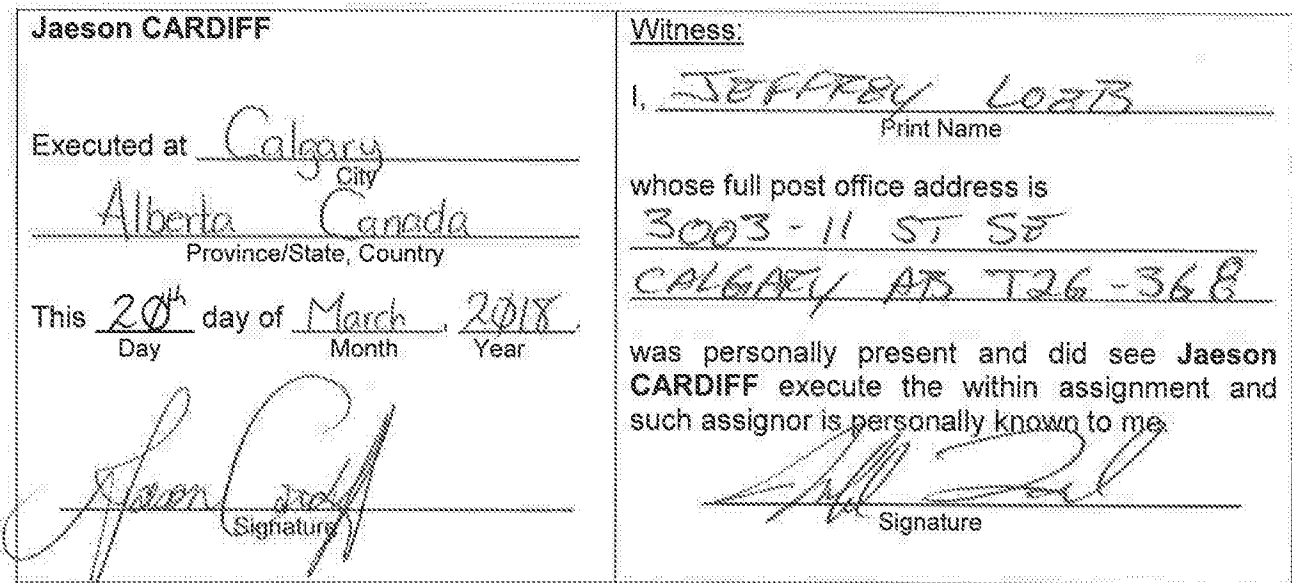 Jaeson CARDIFF
Executed at Calgary
City
Alberta Canada
Province/State, Country
This 20th day of March, 2018.
Day Month Year
Jaeson Cardiff
Signature
Witness:
I, JEFFREY LOEB
Print Name
whose full post office address is
3003-11 ST SE
CALGARY AB T2G-3G8
was personally present and did see Jaeson
CARDIFF execute the within assignment and
such assignor is personally known to me.
Signature